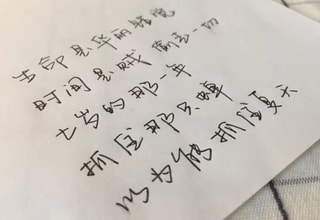 生命是华丽错觉
时间是贼 偷走一切
七岁的那一年
抓住那只蝉
以为能抓住夏天